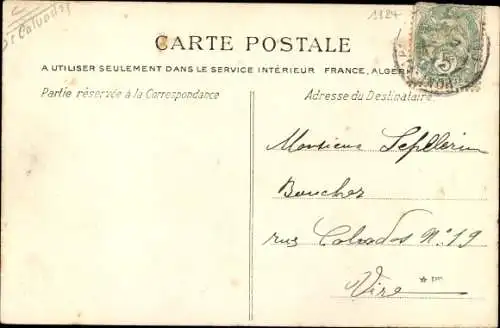 Calvados
1124
CARTE POSTALE
A UTILISER SEULEMENT DANS LE SERVICE INTÉRIEUR FRANCE, ALGER
Partie réservée à la Correspondance
Adresse du Destinataire
5
Monsieur
Boucher
rue Calvados N° 19
Vire